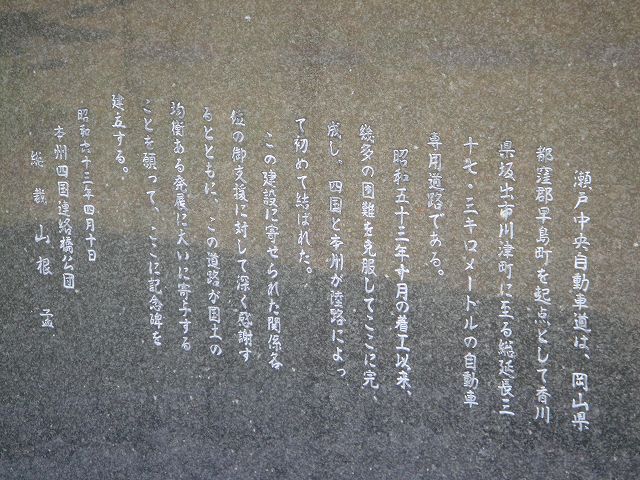 瀬戸中央自動車道は、岡山県
都窪郡早島町を起点として香川
県坂出市川津町に至る総延長三
十七・三キロメートルの自動車
専用道路である。
昭和五十三年十月の着工以来、
幾多の困難を克服してここに完
成し、四国と本州が陸路によっ
て初めて結ばれた。
この建設に寄せられた関係各
位の御支援に対して深く感謝す
るとともに、この道路が国土の
均衡ある発展に大いに寄与する
ことを願って、ここに記念碑を
建立する。
昭和六十三年四月十日
本州四国連絡橋公団
総裁 山根 孟